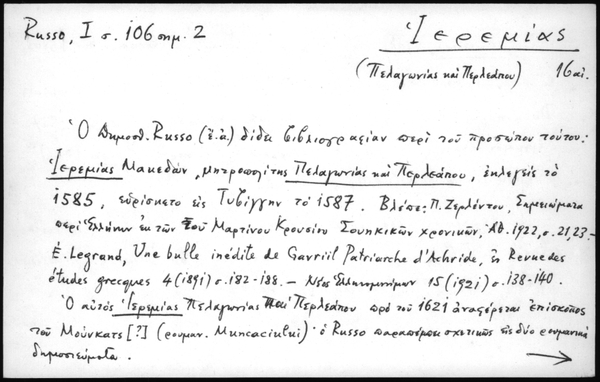 Russo, I σ. 106 σημ. 2
Ἱερεμίας
(Πελαγωνίας καὶ Περλεάπου) 16 αἰ.
Ὁ Δημοσθ. Russo (ἔ.ἀ.) δίδει βιβλιογραφίαν περὶ τοῦ προσώπου τούτου:
Ἱερεμίας Μακεδών, μητροπολίτης Πελαγωνίας καὶ Περλεάπου, ἐκλεγεὶς τὸ
1585, εὑρίσκετο εἰς Τυβίγγην τὸ 1587. Βλέπε: Π. Ζερλέντου, Σημειώματα
περὶ Ἑλλήνων ἐκ τῶν τοῦ Μαρτίνου Κρουσίου Σουηκικῶν χρονικῶν, Ἀθ. 1922, σ. 21, 23.—
E. Legrand, Une bulle inédite de Gavriil Patriarche d'Achride, ἐν Revue des
études grecques 4 (1891) σ. 182-188. — Νέος Ἑλληνομνήμων 15 (1921) σ. 138-140.
Ὁ αὐτὸς Ἱερεμίας Πελαγωνίας καὶ Περλεάπου πρὸ τοῦ 1621 ἀναφέρεται ἐπίσκοπος
τοῦ Μούνκατς [?] (ρουμαν. Muncaciului)· ὁ Russo παραπέμπει σχετικῶς εἰς δύο ρουμανικὰ
δημοσιεύματα.